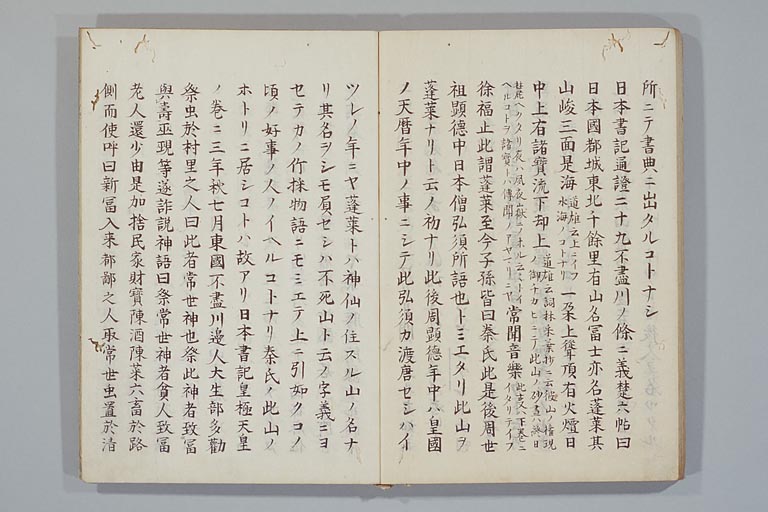 所ニテ書典ニ出タルコトナシ
日本書記通證二十九不盡川ノ條ニ義楚六帖曰
日本國都城東北千餘里有山名冨士亦名蓬萊其
山峻三面是海 道雄云上ニイフ水海ノコトナリ 一朶上聳頂有火煙日
中上有諸寶流下却上
常聞音樂
徐福止此謂蓬萊至今子孫皆曰秦氏此是後周世
祖顕德中日本僧弘須所語也トミエタリ此山ヲ
蓬萊ナリト云ノ初ナリ此後周顕德年中ハ皇國
ノ天曆年中ノ事ニシテ此弘須カ渡唐セシハイ
ツレノ年ニヤ蓬萊トハ神仙ノ住スル山ノ名ナ
リ其名ヲシモ負セシハ不死山ト云ノ字義ニヨ
セテカノ竹採物語ニモミエテ上ニ引如クコノ
頃ノ好事ノ人ノイヘルコトナリ秦氏ノ此山ノ
ホトリニ居シコトハ故アリ日本書記皇極天皇
ノ巻ニ三年秋七月東國不盡川邉人大生部多勸
祭虫於村里之人曰此者常世神也祭此神者致冨
與壽巫覡等遂詐託神語曰祭常世神者貧人致冨
老人還少由是加捨民家財寶陳酒陳菜六畜於路
側而使呼曰新冨入来都鄙之人取常世虫置於清